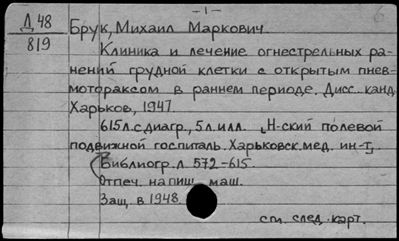 - 1 -
Д 48
819
Брук, Михаил Маркович.
Клиника и лечение огнестрельных ра-
нений грудной клетки с открытым пнев-
мотораксом в раннем периоде. Дисс. канд.
Харьков, 1947.
615 л. с диагр., 5 л. илл. (Н-ский полевой
подвижной госпиталь. Харьковск. мед. ин-т).
Библиогр. л. 572-615.
Отпеч. на пиш. маш.
Защ. в 1948.
см. след. карт.